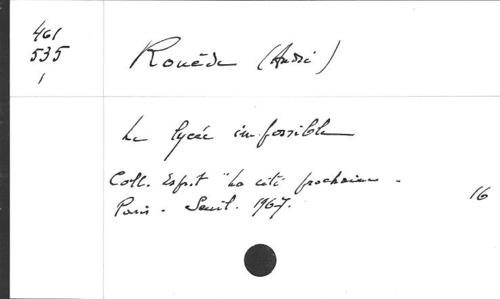 461
535
1
Rouède (André)
Le lycée impossible
Coll. Esprit "La cité prochaine -
Paris - Seuil. 1967.
16